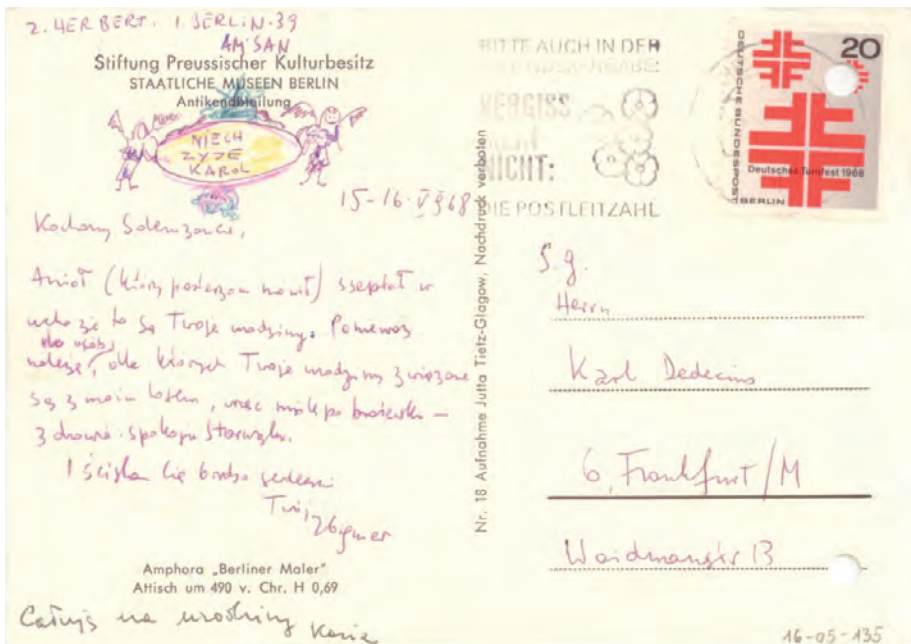 2. HERBERT. 1 BERLIN. 39
AM SAN
Stiftung Preussischer Kulturbesitz
STAATLICHE MUSEEN BERLIN
Antikenabteilung
NIECH
ŻYJE
KAROL
15-16. V 968
Kochany Solenizancie,
Anioł (który pozierzom mówił) szeptał w
ucho że to są Twoje urodziny. Ponieważ
do osób
należę, dla których Twoje urodziny związane
są z moim losem, więc myślę po bratersku –
zdrowia. spokoju
I ściskam Cię bardzo serdecznie
Twój Zbigniew
Amphora „Berliner Maler"
Attisch um 490 v. Chr. H 0,69
Całuję na urodziny Kasia
Nr. 18 Aufnahme Jutta Tietz-Glagow, Nachdruck verboten
BITTE AUCH IN DER
VERGISS
MEIN
NICHT:
DIE POSTLEITZAHL
20
DEUTSCHE BUNDESPOST
BERLIN
Deutsches Turnfest 1968
S.g.
Herrn
Karl Dedecius
6, Frankfurt/M
13
16-05-135